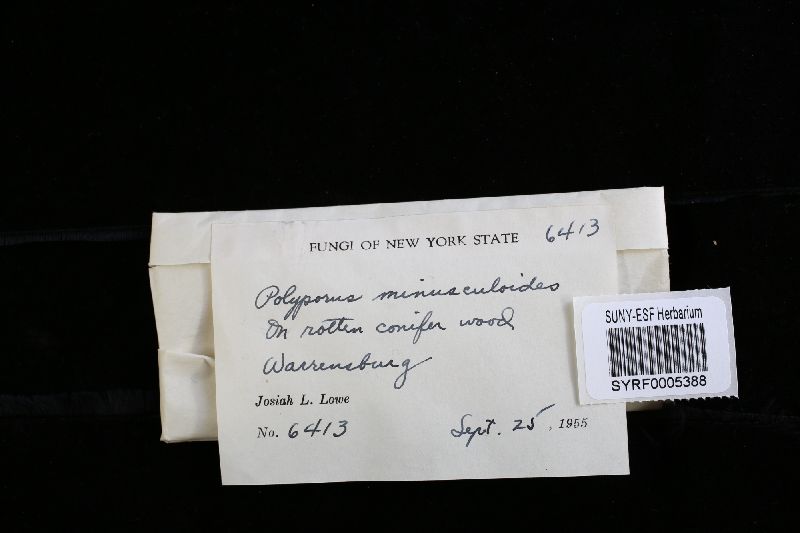 FUNGI OF NEW YORK STATE 6413
Polyporus minusculoides
On rotten conifer wood
Warrensburg
Josiah L. Lowe
No. 6413 Sept. 25, 1955
SUNY-ESF Herbarium
SYRF0005388